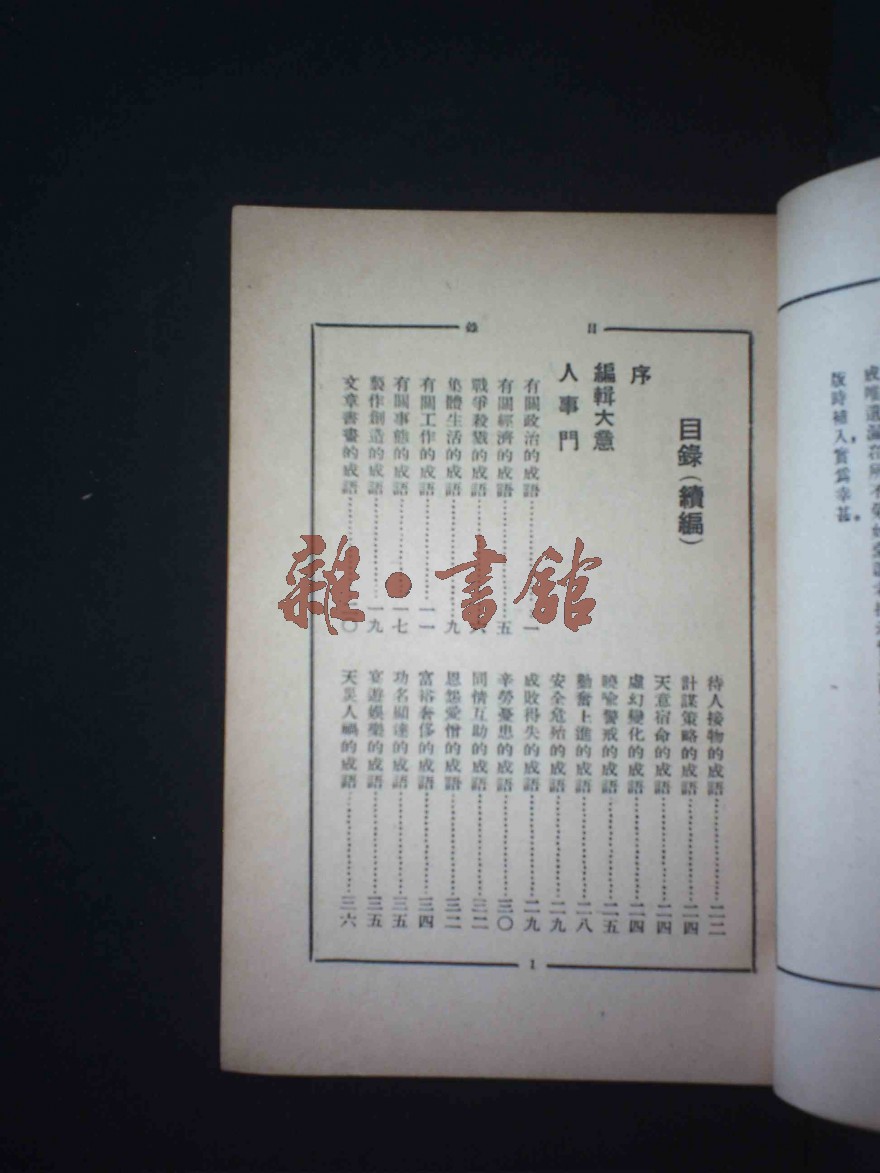 版時補入，實爲幸甚。
目錄
目錄（續編）
序
編輯大意
人事門
有關政治的成語…………一
有關經濟的成語…………五
戰爭殺戮的成語…………六
集體生活的成語…………九
有關工作的成語…………一一
有關事態的成語…………一七
製作創造的成語…………一九
文章書畫的成語…………二〇
待人接物的成語…………二二
計謀策略的成語…………二四
天意宿命的成語…………二四
虛幻變化的成語…………二四
曉喻警戒的成語…………二五
勤奮上進的成語…………二八
安全危殆的成語…………二九
成敗得失的成語…………二九
辛勞憂患的成語…………三〇
同情互助的成語…………三二
恩怨愛憎的成語…………三二
富裕奢侈的成語…………三四
功名顯達的成語…………三五
宴遊娛樂的成語…………三五
天災人禍的成語…………三六
1
雜•書館